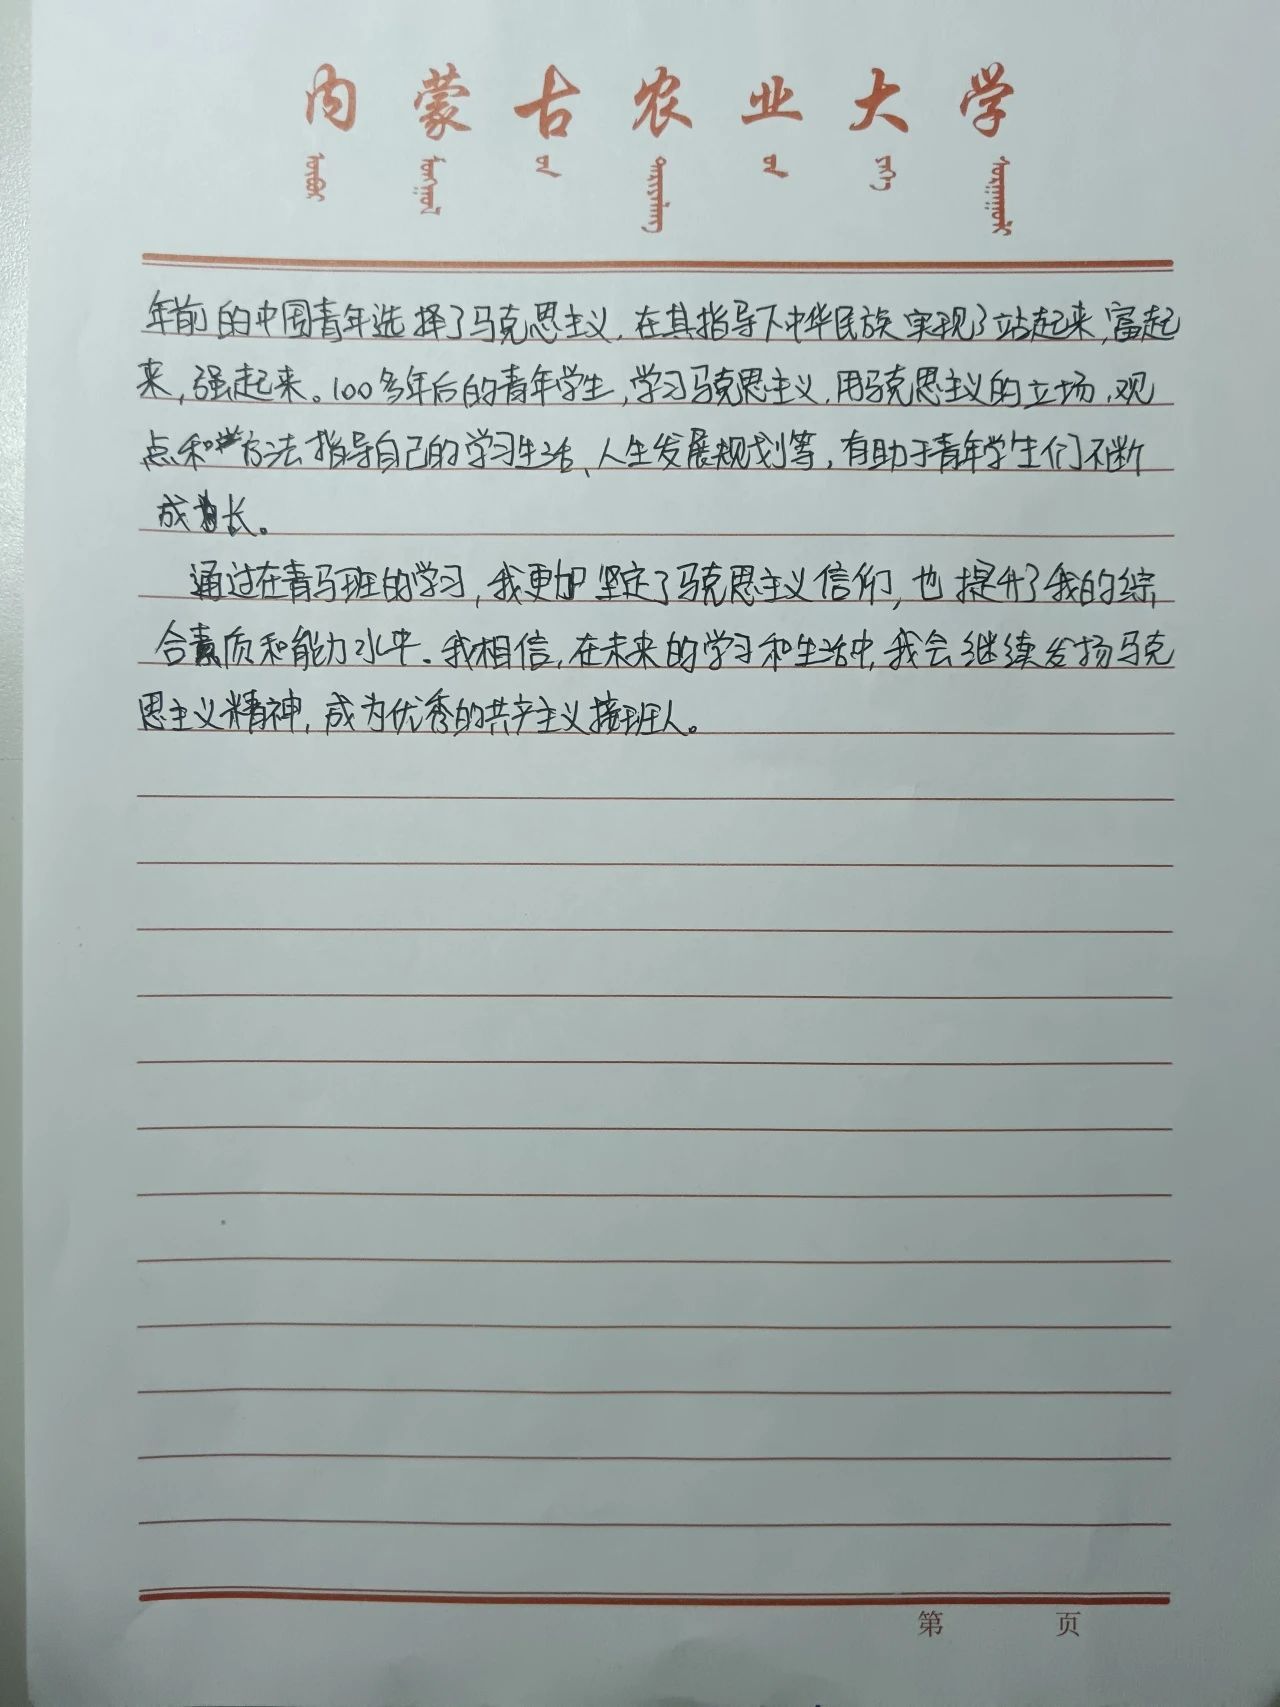 内蒙古农业大学
年前的中国青年选择了马克思主义,在其指导下中华民族实现了站起来,富起
来,强起来。100多年后的青年学生,学习马克思主义,用马克思主义的立场、观
点和方法指导自己的学习生活、人生发展规划等,有助于青年学生们不断
成长。
通过在青马班的学习,我更加坚定了马克思主义信仰,也提升了我的综
合素质和能力水平。我相信,在未来的学习和生活中,我会继续发扬马克
思主义精神,成为优秀的共产主义接班人。
第 页